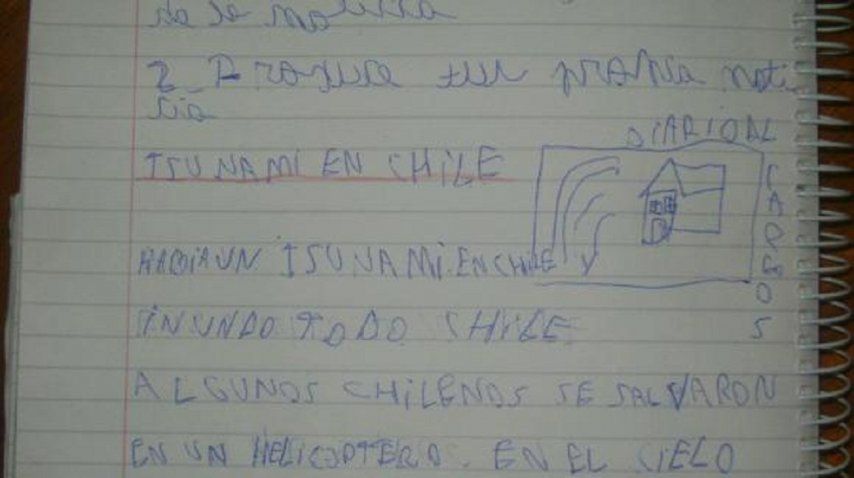 de la noticia
2_ Produce tu propia noti
cia
DIARIO AL
TSUNAMI EN CHILE
CARGOS
HABIA UN TSUNAMI EN CHILE
INUNDO TODO CHILE
ALGUNOS CHILENOS SE SALVARON
EN UN HELICOPTERO. EN EL CIELO